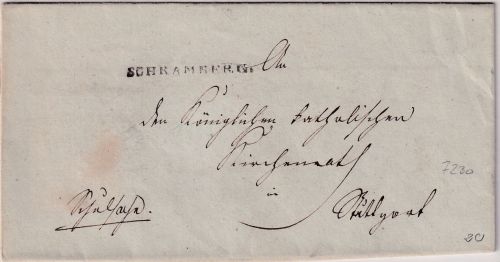 SCHRAMBERG. An
den Königlichen katholischen
Kirchenrath
in
Stuttgart
Schulsache.
7230
20